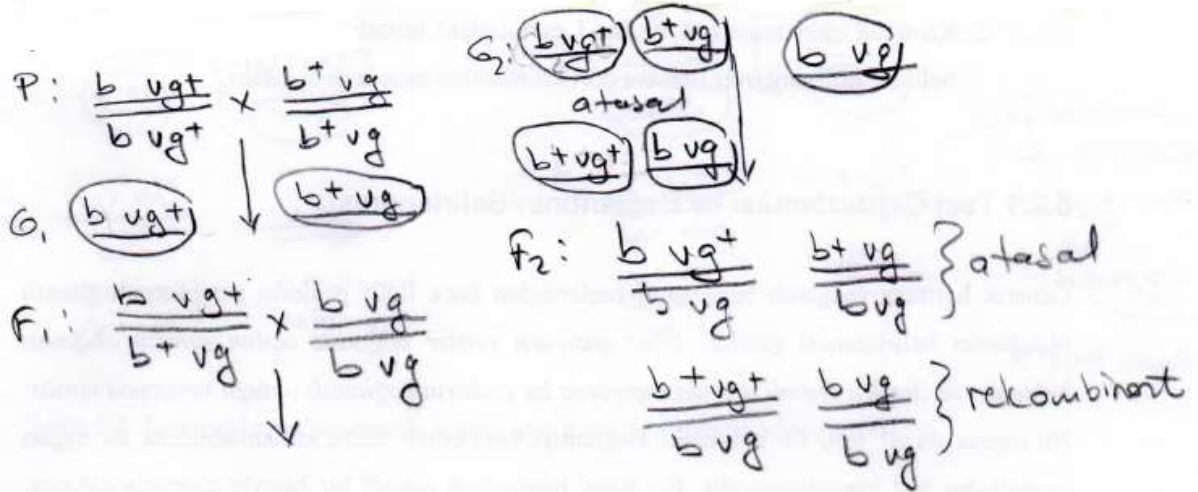 P: b vg+ x b+ vg
b vg+ b+ vg
G1 b vg+ b+ vg
F1: b vg+ x b vg
b+ vg b vg
G2: b vg+ b+ vg b vg
atasal
b+ vg+ b vg
F2: b vg+ b+ vg } atasal
b vg b vg
b+ vg+ b vg } rekombinant
b vg b vg